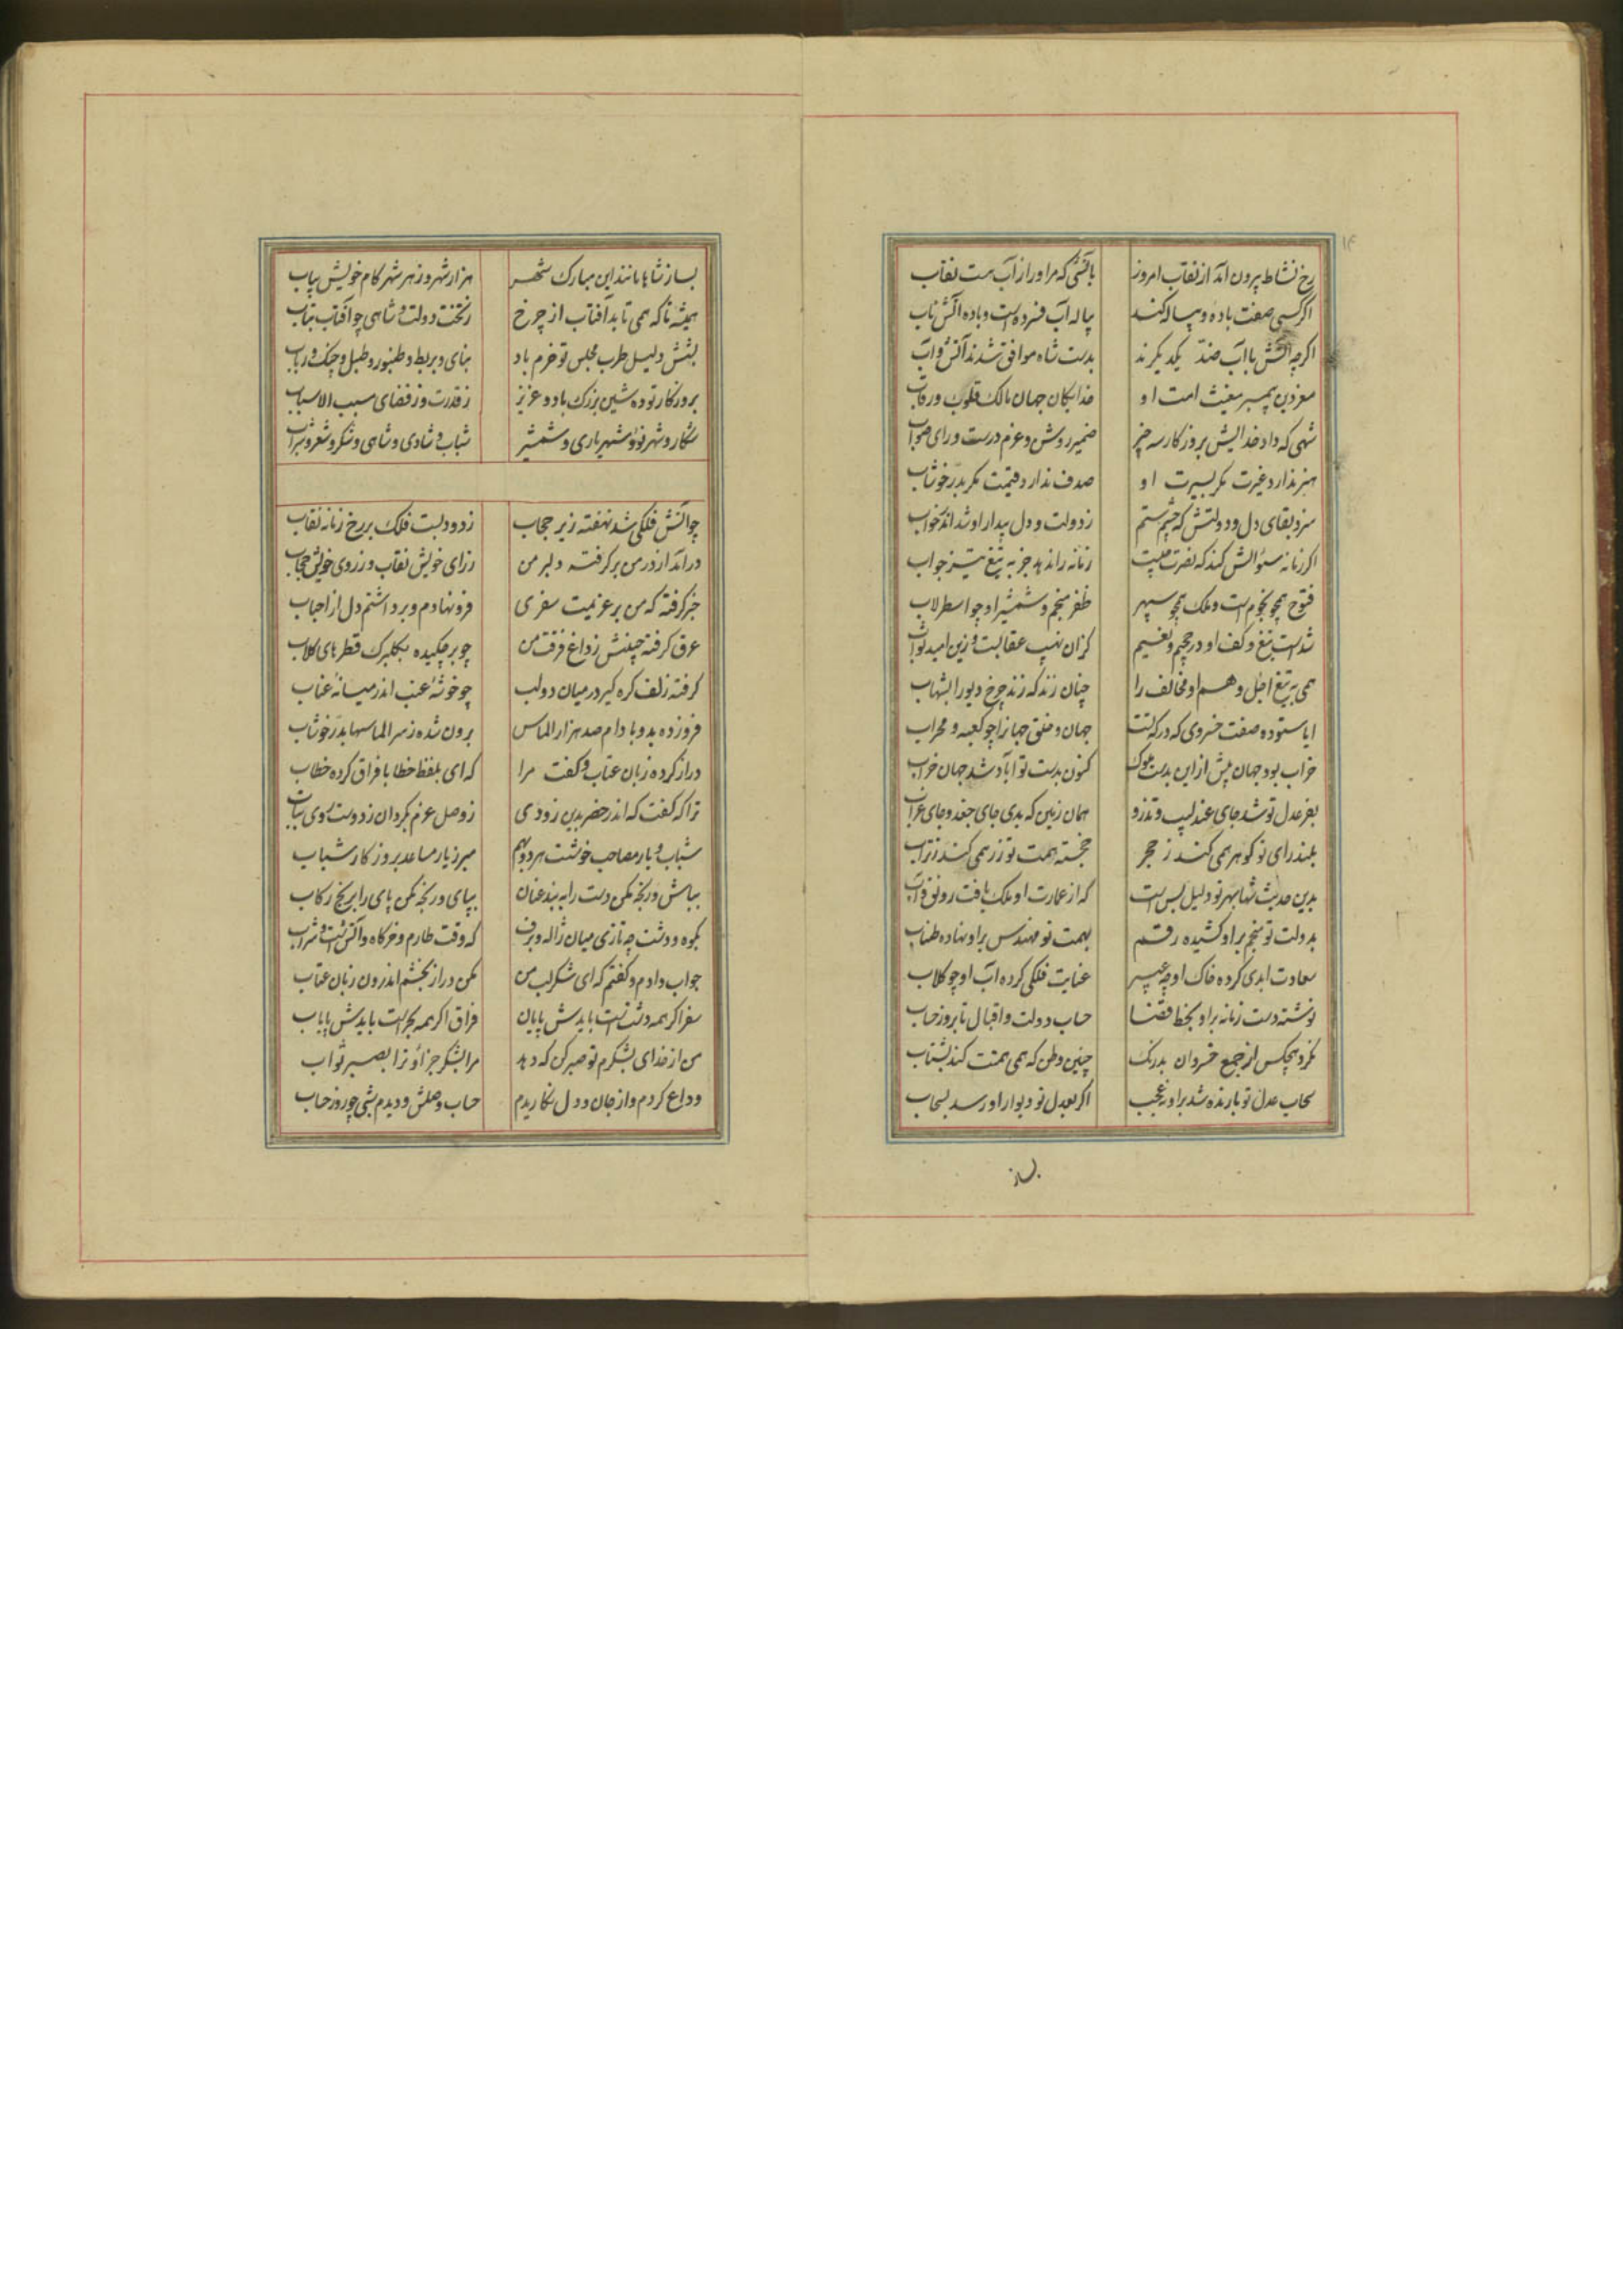 رخ نشاط برون آمد از نقاب امروز بآتشی که مر او را ز آب هست نقاب
اگر کسی صفت باده و پیاله کند پیاله آب فسرده است و باده آتش ناب
اگرچه آتش با آب ضد یکدیگرند بدست شاه موافق شدند آتش و آب
معز دین پیمبر مغیث امت او خدایگان جهان مالک قلوب و رقاب
شهی که داد خدایش بروزگار سه چیز ضمیر روشن و عزم درست و رای صواب
هنر ندارد غیرت مگر بسیرت او صدف ندارد قیمت مگر بدر خوشاب
سزد بقای دل و دولتش که چشم ستم ز دولت و دل بیدار او شد اندر خواب
اگر زمانه سئوالش کند که نصرت چیست زمانه را ندهد جز به تیغ تیز جواب
فتوح همچو نجوم است و ملک همچو سپهر ظفر منجم و شمشیر او چو اسطرلاب
شد است تیغ و کف او در جحیم و نعیم کزان نهیب عقابست و زین امید ثواب
همی به تیغ اجل وهم او مخالف را چنان زند که زند چرخ دیو را بشهاب
ایا ستوده صفت خسروی که درگه تست جهان و خلق جهانرا چو کعبه و محراب
خراب بود جهان پیش ازین بدست ملوک کنون بدست تو آباد شد جهان خراب
بفر عدل تو شد جای عندلیب و تذرو همان زمین که بدی جای جغد و جای غراب
بلند رای تو گوهر همی کند ز حجر خجسته همت تو زر همی کند ز تراب
بدین حدیث شها شهر تو دلیل بس است که از عمارت او ملک یافت رونق و آب
بدولت تو منجم بر او کشیده رقم بهمت تو مهندس بر او نهاده طناب
سعادت ابدی کرده خاک او چو عبیر عنایت فلکی کرده آب او چو گلاب
نوشته دست زمانه بر او بخط قضا حساب دولت و اقبال تا بروز حساب
نکرد هیچکس از جمع خسروان بدرنگ چنین وطن که همی همتت کند بشتاب
سحاب عدل تو بارنده شد بر او نه عجب اگر بعدل تو دیوار او رسد بسحاب
بساز
بساز شاها مانند این مبارک شهر هزار شهر و ز هر شهر کام خویش بیاب
همیشه تا که همی تابد آفتاب از چرخ ز تخت دولت و شاهی چو آفتاب بتاب
بشش دلیل طرب مجلس تو خرم باد بنای و بربط و طنبور و طبل و چنگ و رباب
بروزگار تو ده شین بزرگ باد و عزیز ز قدرت و ز قضای مسبب الاسباب
شکار و شهر نو و شهریاری و شمشیر شباب و شادی و شاهی و شکر و شعر و شراب
چو آتش فلکی شد نهفته زیر حجاب ز دود بست فلک بر رخ زمانه نقاب
درآمد از در من برگرفته دلبر من ز رای خویش نقاب و ز روی خویش حجاب
خبر گرفته که من بر عزیمت سفری فرو نهادم و برداشتم دل از احباب
عرق گرفته جبینش ز داغ فرقت من چو بر چکیده بگلبرگ قطرهای گلاب
گرفته زلف گره گیر در میان دو لب چو خوشه عنب اندر میانه عناب
فرو زده بدو بادام صد هزار الماس برون شده ز سر الماسها بدر خوشاب
دراز کرده زبان عتاب و گفت مرا که ای بلفظ خطا با فراق کرده خطاب
ترا که گفت که اندر حضر بدین زودی ز وصل عزم بگردان ز دوست روی بتاب
شباب و یار مصاحب خوشست هر دو بهم مبر ز یار مساعد بروزگار شباب
بباش و رنجه مکن دست را به بند عنان بپای و رنجه مکن پای را برنج رکاب
بکوه و دشت چه تازی میان ژاله و برف که وقت طارم و خرگاه و آتش است و شراب
جواب دادم و گفتم که ای شکر لب من مکن دراز بخشم اندرون زبان عتاب
سفر اگر همه دشت است بایدش پایان فراق اگر همه بحر است بایدش پایاب
من از خدای بشکرم تو صبر کن که دهد مرا بشکر جزا و ترا بصبر ثواب
وداع کردم و از جان و دل نگاریدم حساب وصلش و دیدم شبی چو روز حساب